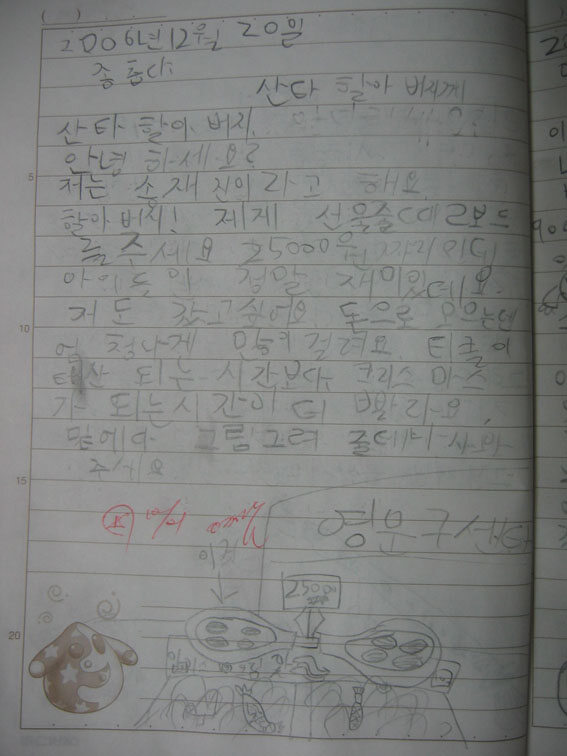 2006년12월 20일
좋 릅다
산타 할아 버지께
산타 할아 버지.
안녕 하세요?
저는 송재진이라고 해요
할아버지! 제게 선물좀
를 주세요 25000원 짜리 인데
아이들 이 정말 재미있데요.
저도 갔고싶어요 돈으로 모으는데
엄청나게 많이걸려요. 티끌이
태산 되는 시간보다 크리스 마스
가 되는시간이 더 빨라요.
밑에다 그림그려 줄테니 사와
주세요
이것
25000
5
10
15
20